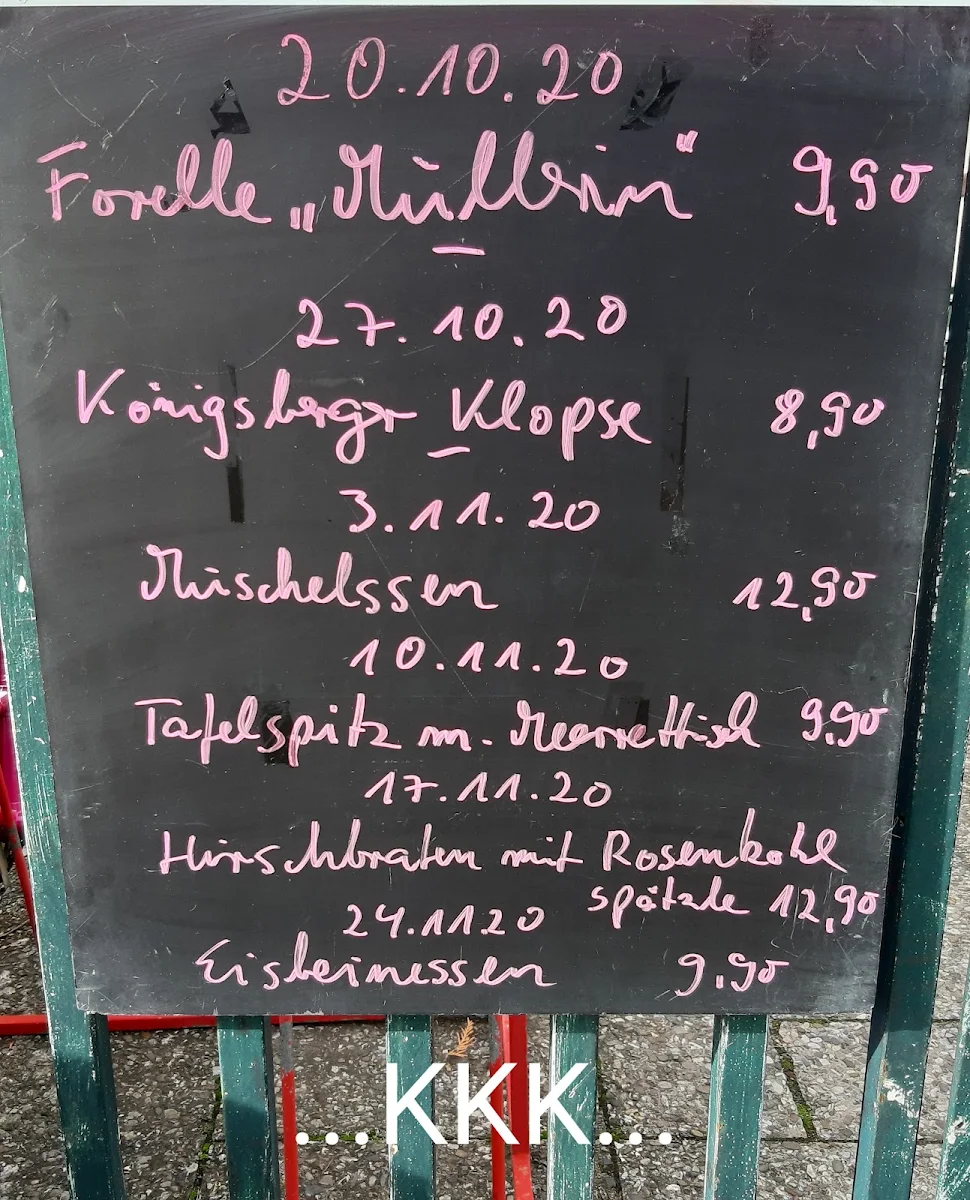 20.10.20
Forelle „Müllerin“ 9,90
27.10.20
Königsberger Klopse 8,90
3.11.20
Muschelssen 12,90
10.11.20
Tafelspitz m. Meerrettisch 9,90
17.11.20
Hirschbraten mit Rosenkohl
spätzle 12,90
24.1120
Eisbeinessen 9,90
...KKK...